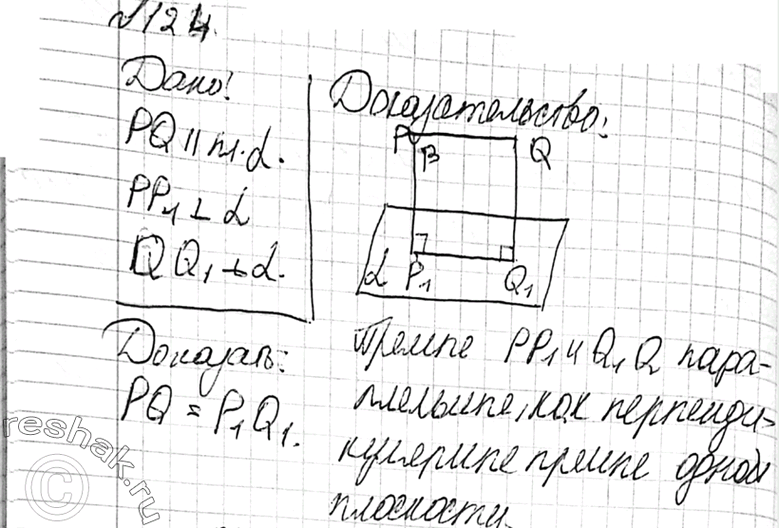 №124.
Дано:
PQ || пл. α.
PP₁ ⊥ α
QQ₁ ⊥ α.
Доказать:
PQ = P₁Q₁.
Доказательство:
P B Q
α P₁ Q₁
Прямые PP₁ и Q₁Q пара-
ллельные, как перпенди-
кулярные прямые одной
плоскости.
reshak.ru